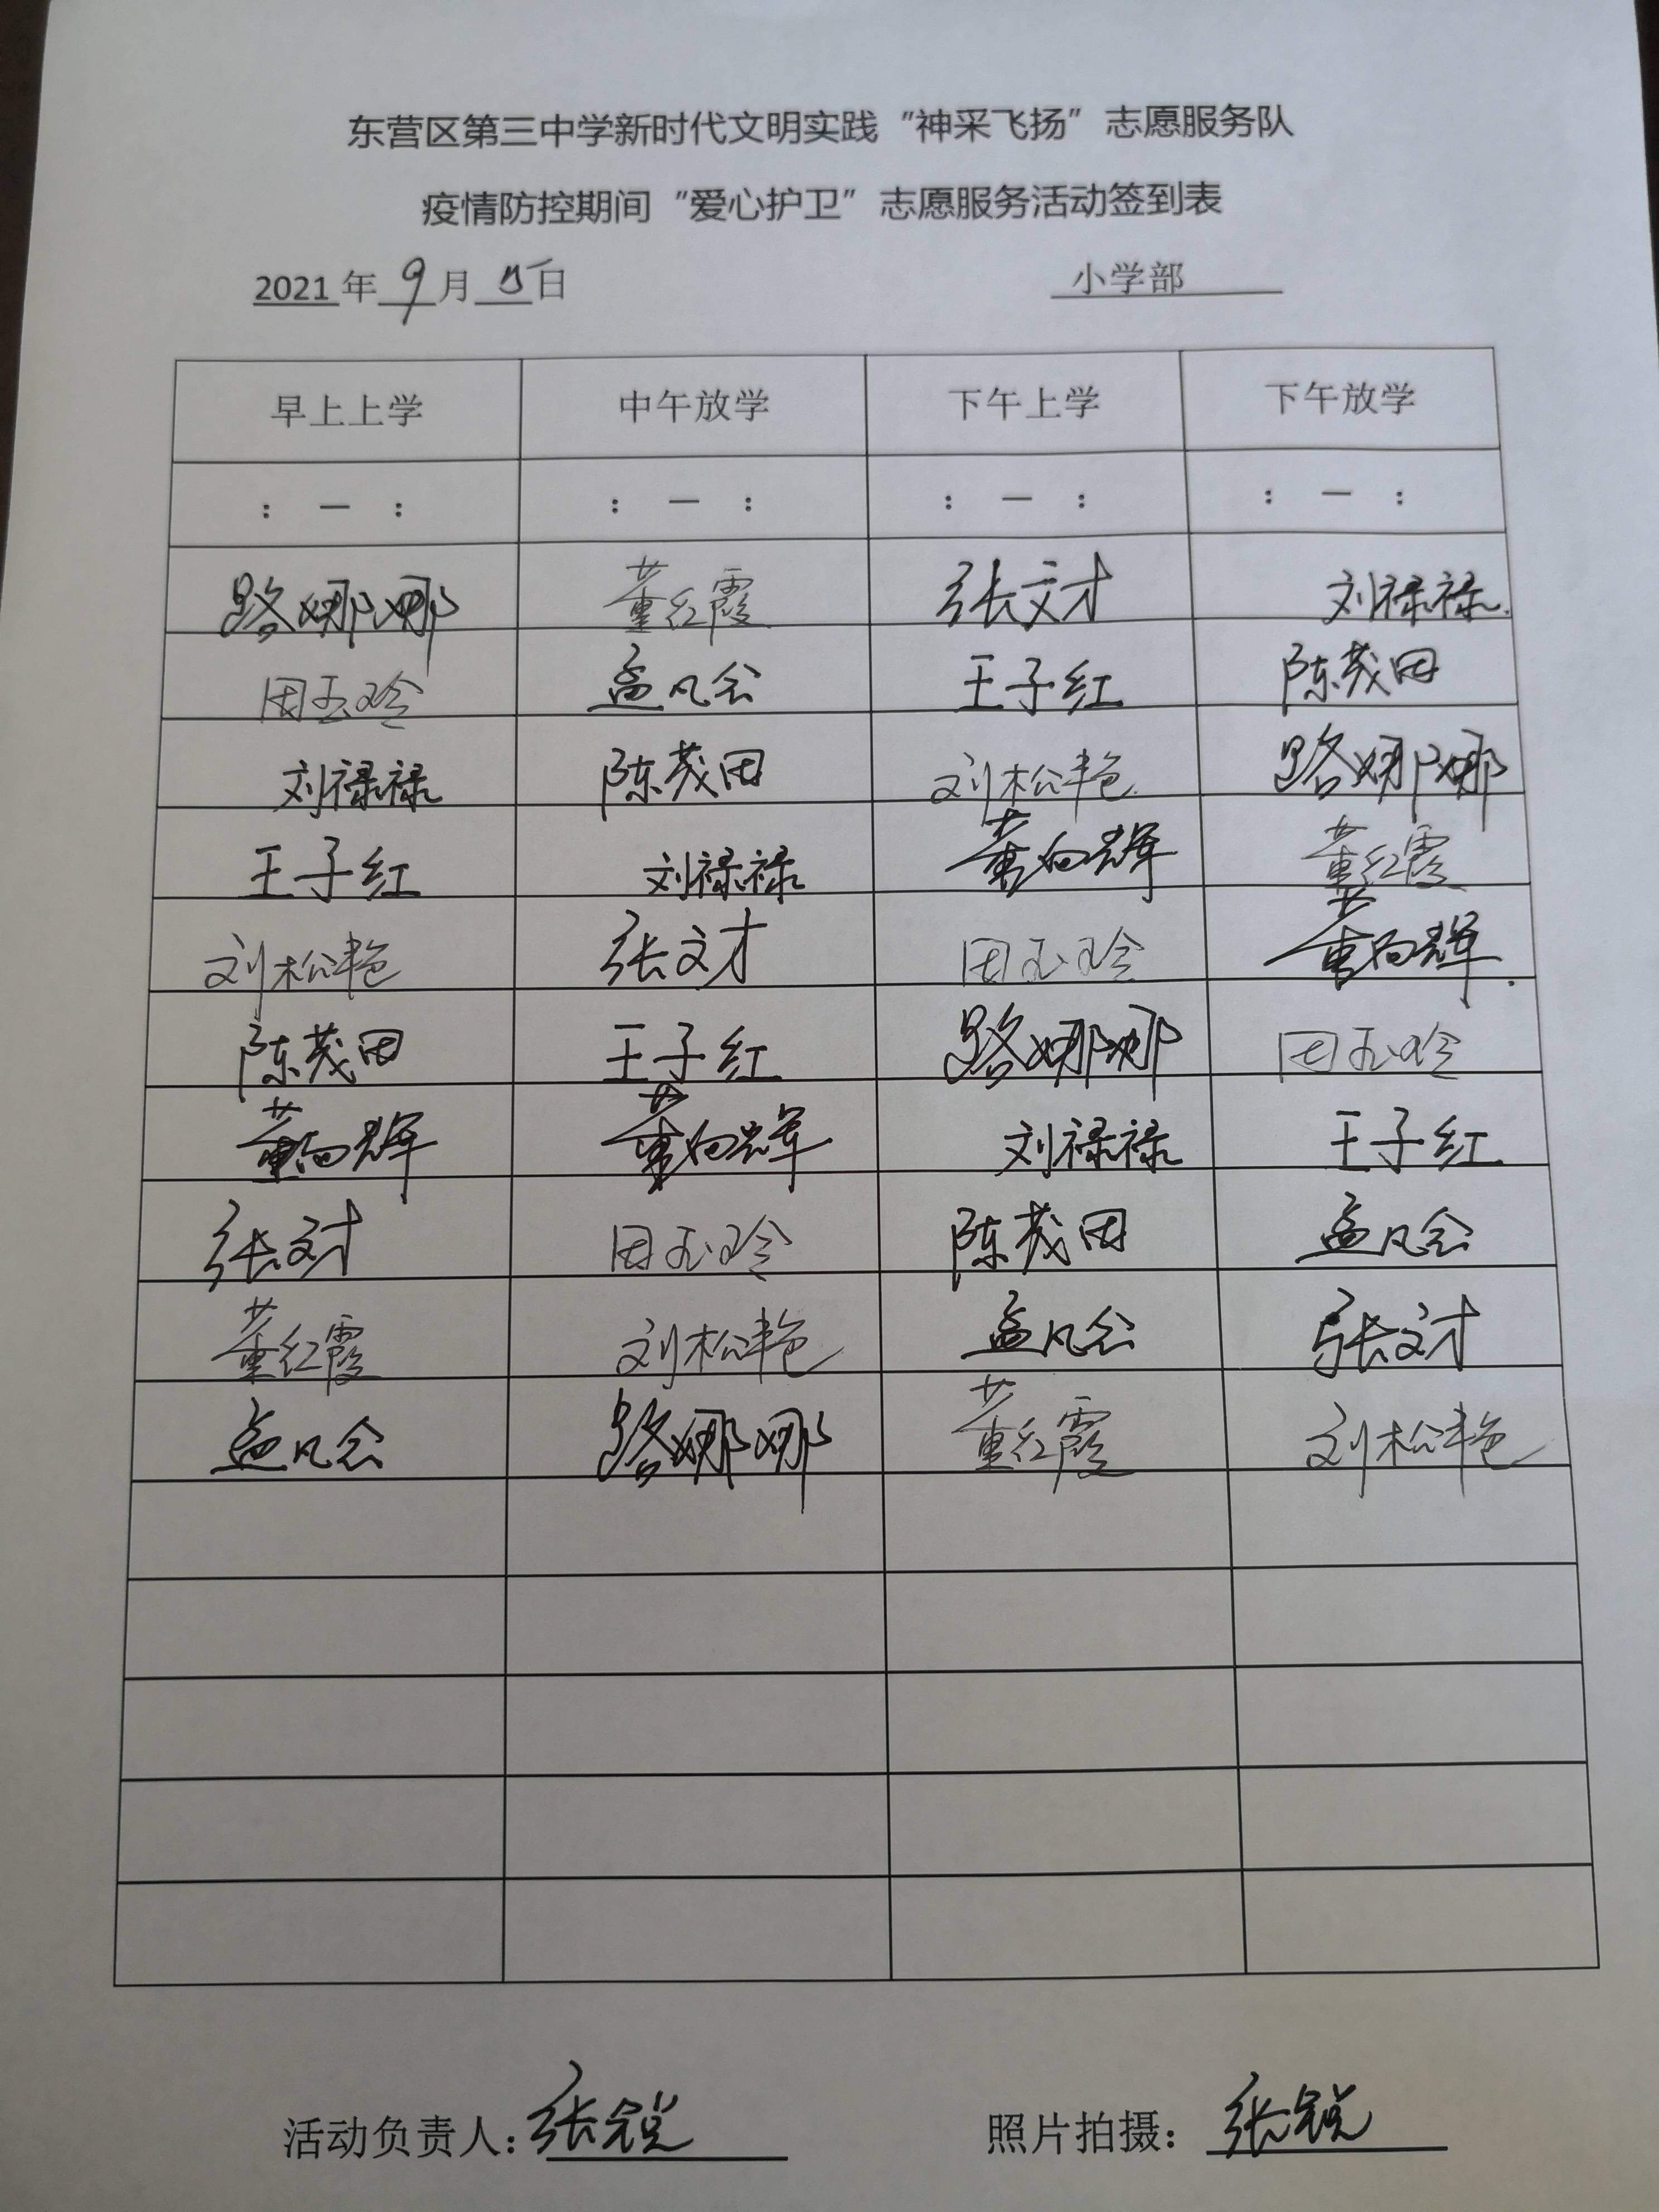 东营区第三中学新时代文明实践“神采飞扬”志愿服务队
疫情防控期间“爱心护卫”志愿服务活动签到表
2021年 9 月 日 小学部
早上上学 中午放学 下午上学 下午放学
: — : : — : : — : : — :
路娜娜 董红霞 张文才 刘禄禄
周玉玲 孟凡会 王子红 陈茂田
刘禄禄 陈茂田 刘松艳 路娜娜
王子红 刘禄禄 董向辉 董红霞
刘松艳 张文才 周玉玲 董向辉
陈茂田 王子红 路娜娜 周玉玲
董向辉 董向辉 刘禄禄 王子红
张文才 周玉玲 陈茂田 孟凡会
董红霞 刘松艳 孟凡会 张文才
孟凡会 路娜娜 董红霞 刘松艳
活动负责人：张锐 照片拍摄：张锐